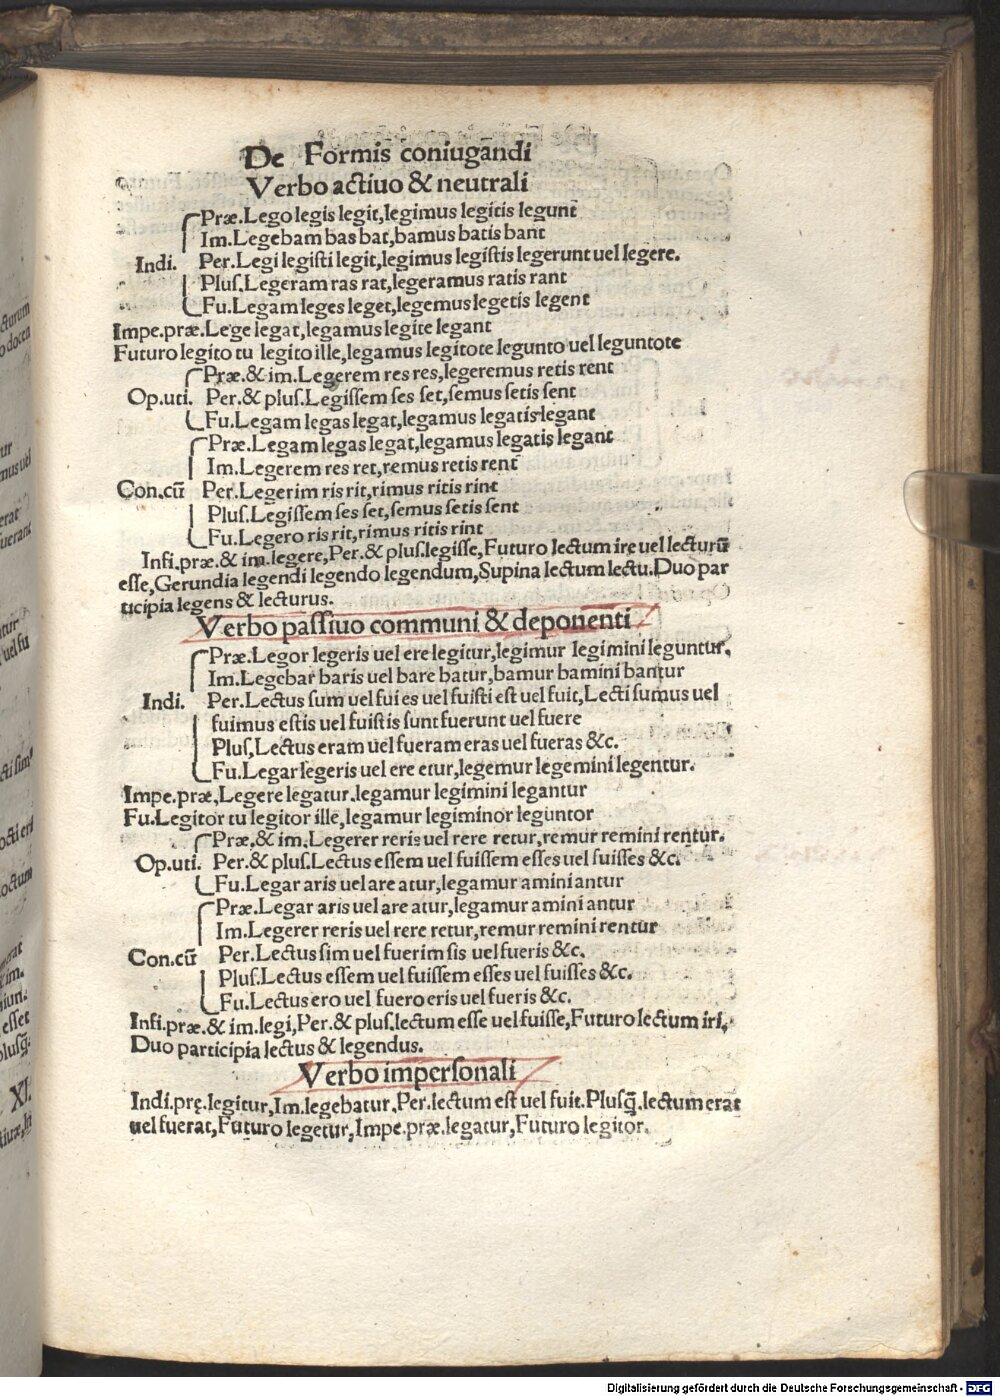 De Formis coniugandi
Verbo actiuo & neutrali
Præ.Lego legis legit,legimus legitis legunt
Im.Legebam bas bat,bamus batis bant
Indi. Per.Legi legisti legit,legimus legistis legerunt uel legere.
Pluſ.Legeram ras rat,legeramus ratis rant
Fu.Legam leges leget,legemus legetis legent
Impe.præ.Lege legat,legamus legite legant
Futuro legito tu legito ille,legamus legitote legunto uel leguntote
Præ.& im.Legerem res res,legeremus retis rent
Op.uti. Per.& pluſ.Legiſſem ſes ſet,ſemus ſetis ſent
Fu.Legam legas legat,legamus legatis legant
Præ.Legam legas legat,legamus legatis legant
Im.Legerem res ret,remus retis rent
Con.cū Per.Legerim ris rit,rimus ritis rint
Pluſ.Legiſſem ſes ſet,ſemus ſetis ſent
Fu.Legero ris rit,rimus ritis rint
Infi.præ.& im.legere,Per.& pluſ.legiſſe,Futuro lectum ire uel lecturū
eſſe,Gerundia legendi legendo legendum,Supina lectum lectu.Duo par
ticipia legens & lecturus.
Verbo paſſiuo communi & deponenti
Præ.Legor legeris uel ere legitur,legimur legimini leguntur.
Im.Legebar baris uel bare batur,bamur bamini bantur
Indi. Per.Lectus sum uel fui es uel fuisti est uel fuit,Lecti sumus uel
fuimus estis uel fuistis sunt fuerunt uel fuere
Pluſ,Lectus eram uel fueram eras uel fueras &c.
Fu.Legar legeris uel ere etur,legemur legemini legentur.
Impe.præ,Legere legatur.legamur legimini legantur
Fu.Legitor tu legitor ille,legamur legiminor leguntor
Præ,& im.Legerer reris uel rere retur,remur remini rentur.
Op.uti. Per.& pluſ.Lectus eſſem uel fuiſſem eſſes uel fuiſſes &c.
Fu.Legar aris uel are atur,legamur amini antur
Præ.Legar aris uel are atur,legamur amini antur
Im.Legerer reris uel rere retur,remur remini rentur
Con.cū Per.Lectus sim uel fuerim sis uel fueris &c.
Pluſ.Lectus eſſem uel fuiſſem eſſes uel fuiſſes &c.
Fu.Lectus ero uel fuero eris uel fueris &c.
Infi.præ.& im.legi,Per.& pluſ.lectum eſſe uel fuiſſe,Futuro lectum iri,
Duo participia lectus & legendus.
Verbo imperſonali
Indi.prę.legitur,Im.legebatur,Per.lectum est uel fuit.Pluſq̄.lectum erat
uel fuerat,Futuro legetur,Impe.præ.legatur,Futuro legitor.
Digitalisierung gefördert durch die Deutsche Forschungsgemeinschaft - DFG